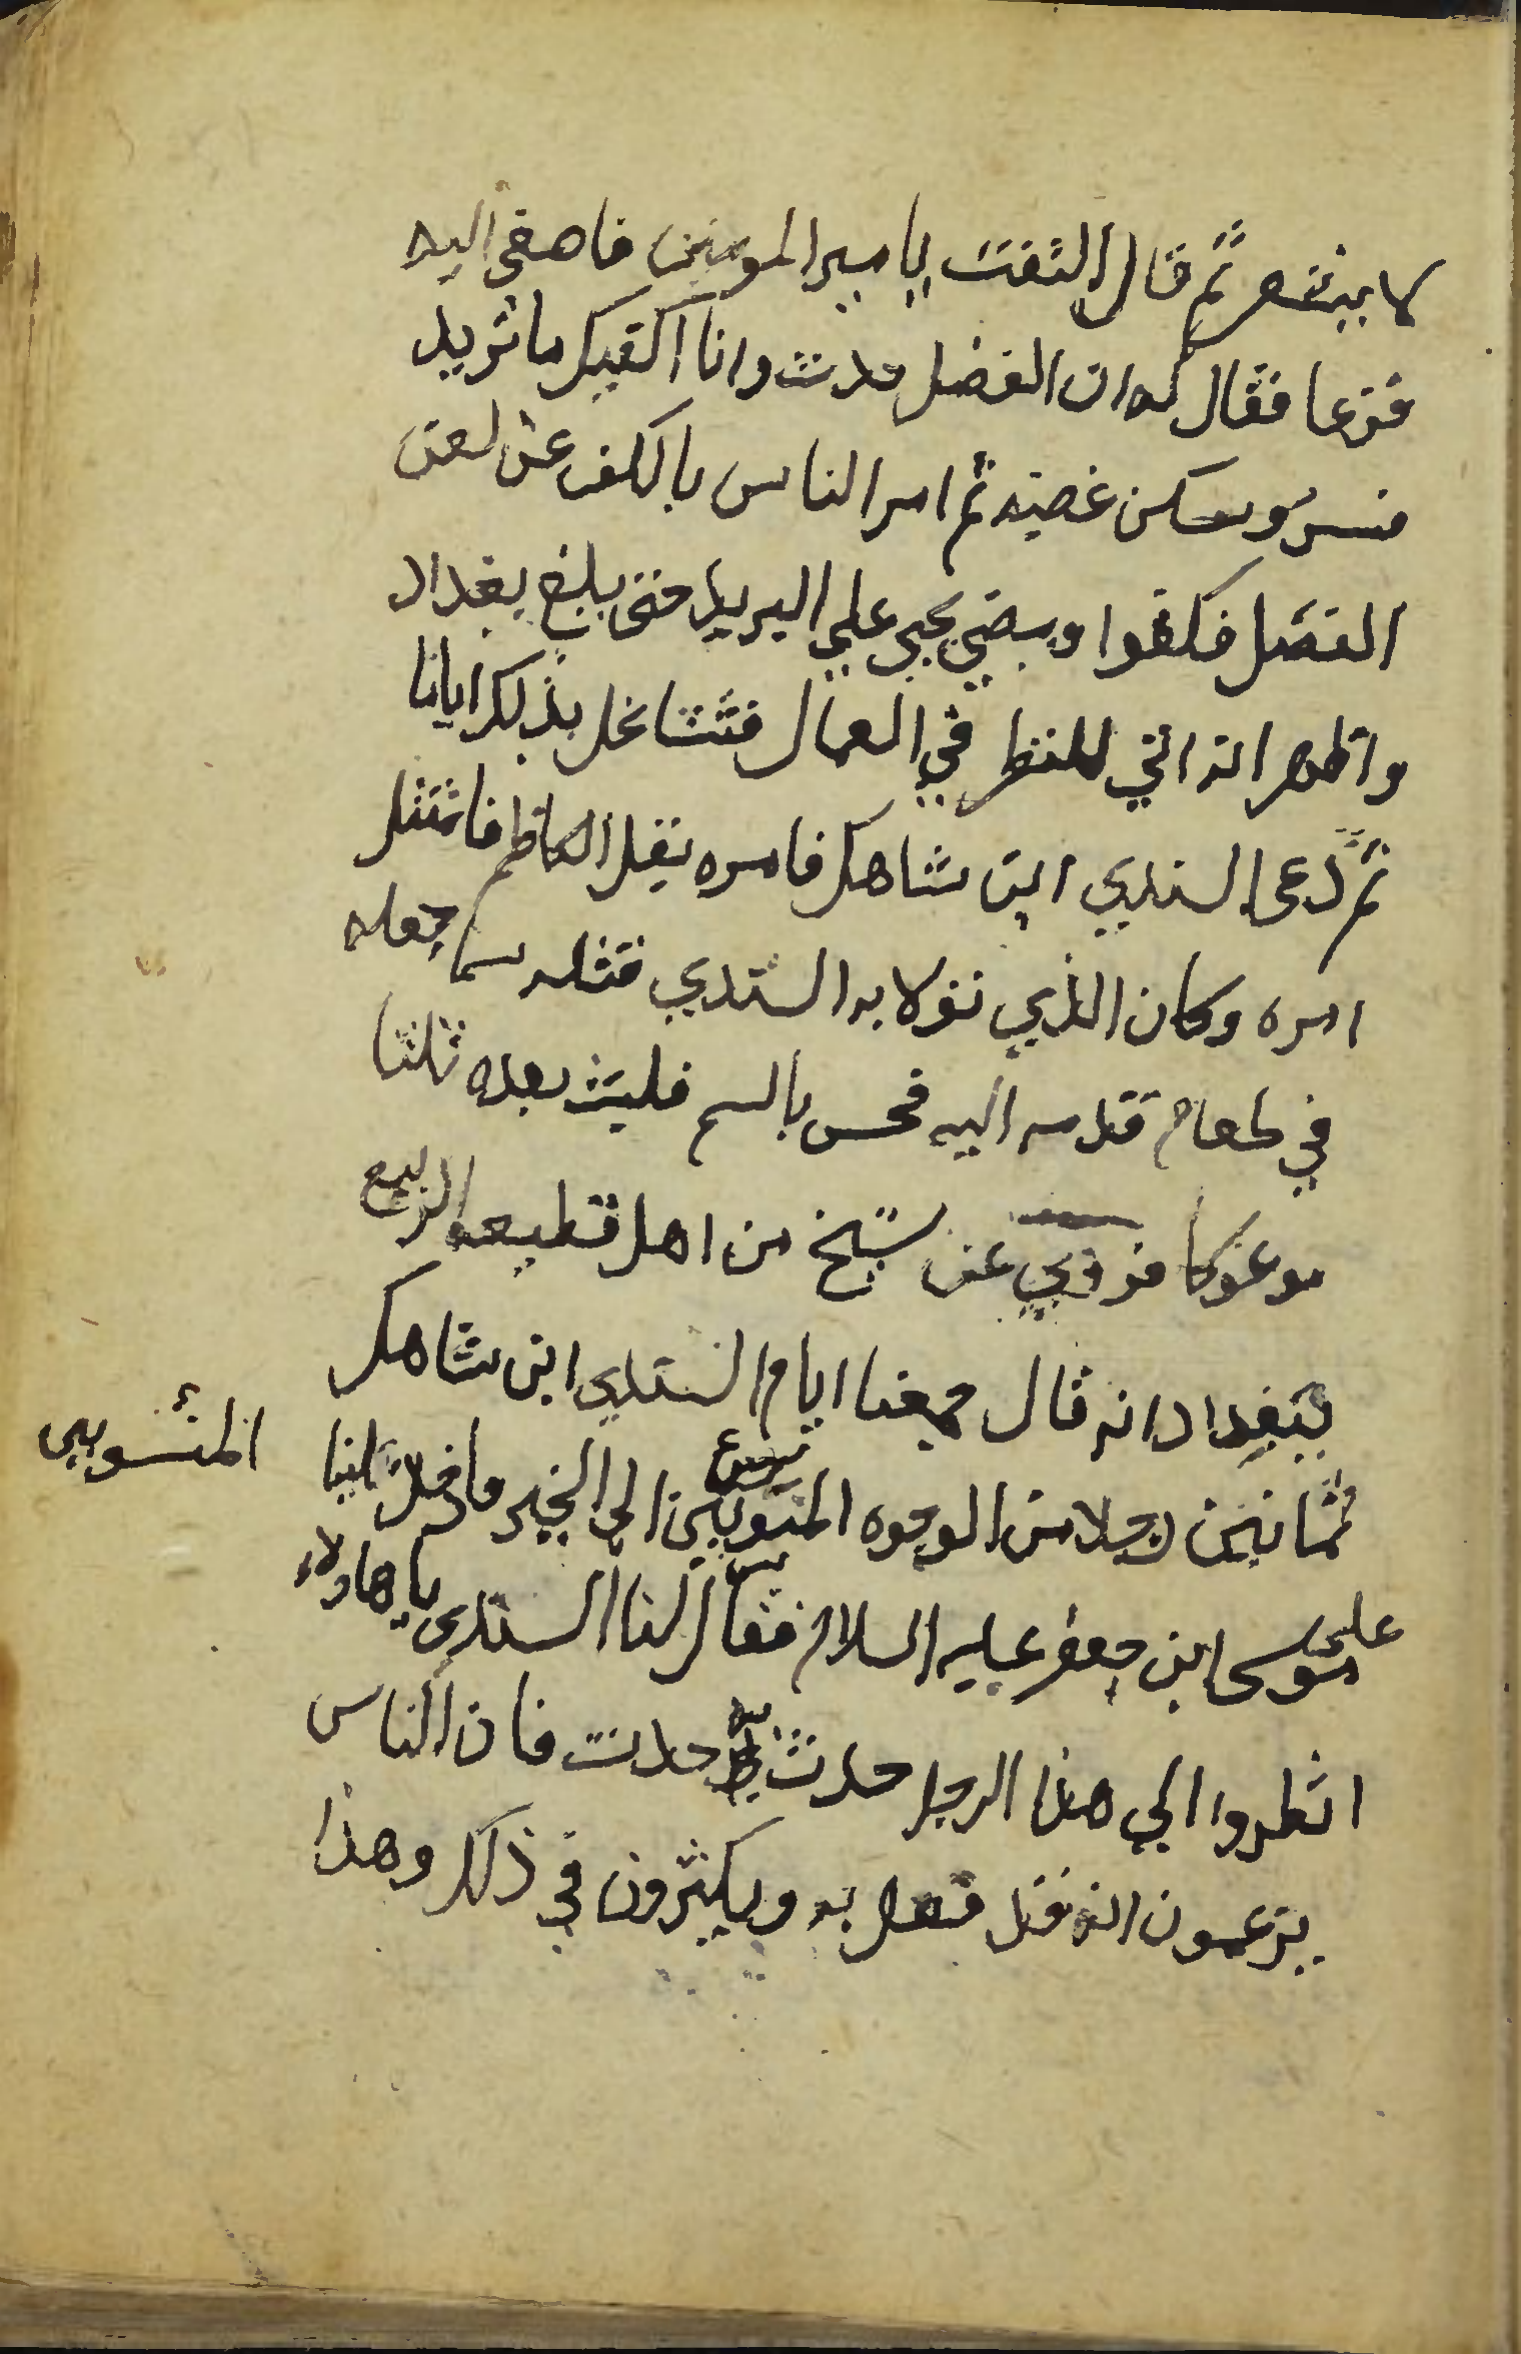 لا يشعر ثم قال التفت يا امير المومنين فاصغى اليه
فزعا فقال له ان الفضل حدث وانا اكفيك ما تريد
فسر وسكن غضبه ثم امر الناس بالكف عن لعن
الفضل فكفوا ومضي يحيي علي البريد حتى بلغ بغداد
واظهر انه اتي للنظر في العمال فتشاغل بذلك اياما
ثم دعى السندي ابن شاهك فامره بقتل الكاظم فامتثل
امره وكان الذي تولا به السندي قتله سما جعله
في طعام قدمه اليه فحس بالسم فلبث بعده ثلثا
موعوكا فروي عن شيخ من اهل قطيعه الربيع
ببغداد انه قال جمعنا ايام السندي ابن شاهك
ثمانين رجلا من الوجوه المنسوبين الى الخير فادخلنا
المنسوبين
علي موسى ابن جعفر عليه السلام فقال لنا السندى يا هاولاء
انظروا الي هذا الرجل حدث به حدث فان الناس
يزعمون انه قد فعل به ويكثرون في ذلك وهذا